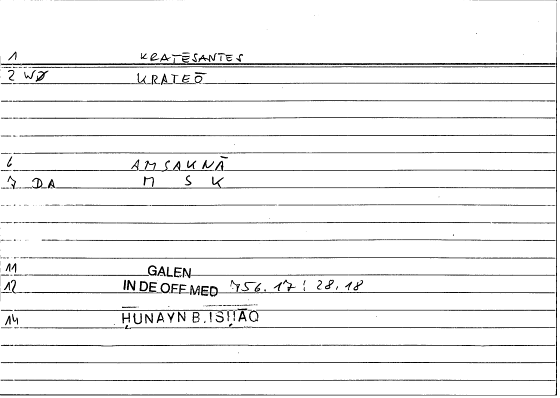 1 KRATĒSANTES
2 WØ KRATEŌ
6 AMSAKNĀ
7 DA M S K
11 GALEN
12 IN DE OFF MED 756.17 : 28,18
14 ḤUNAYN B.ISḤĀQ